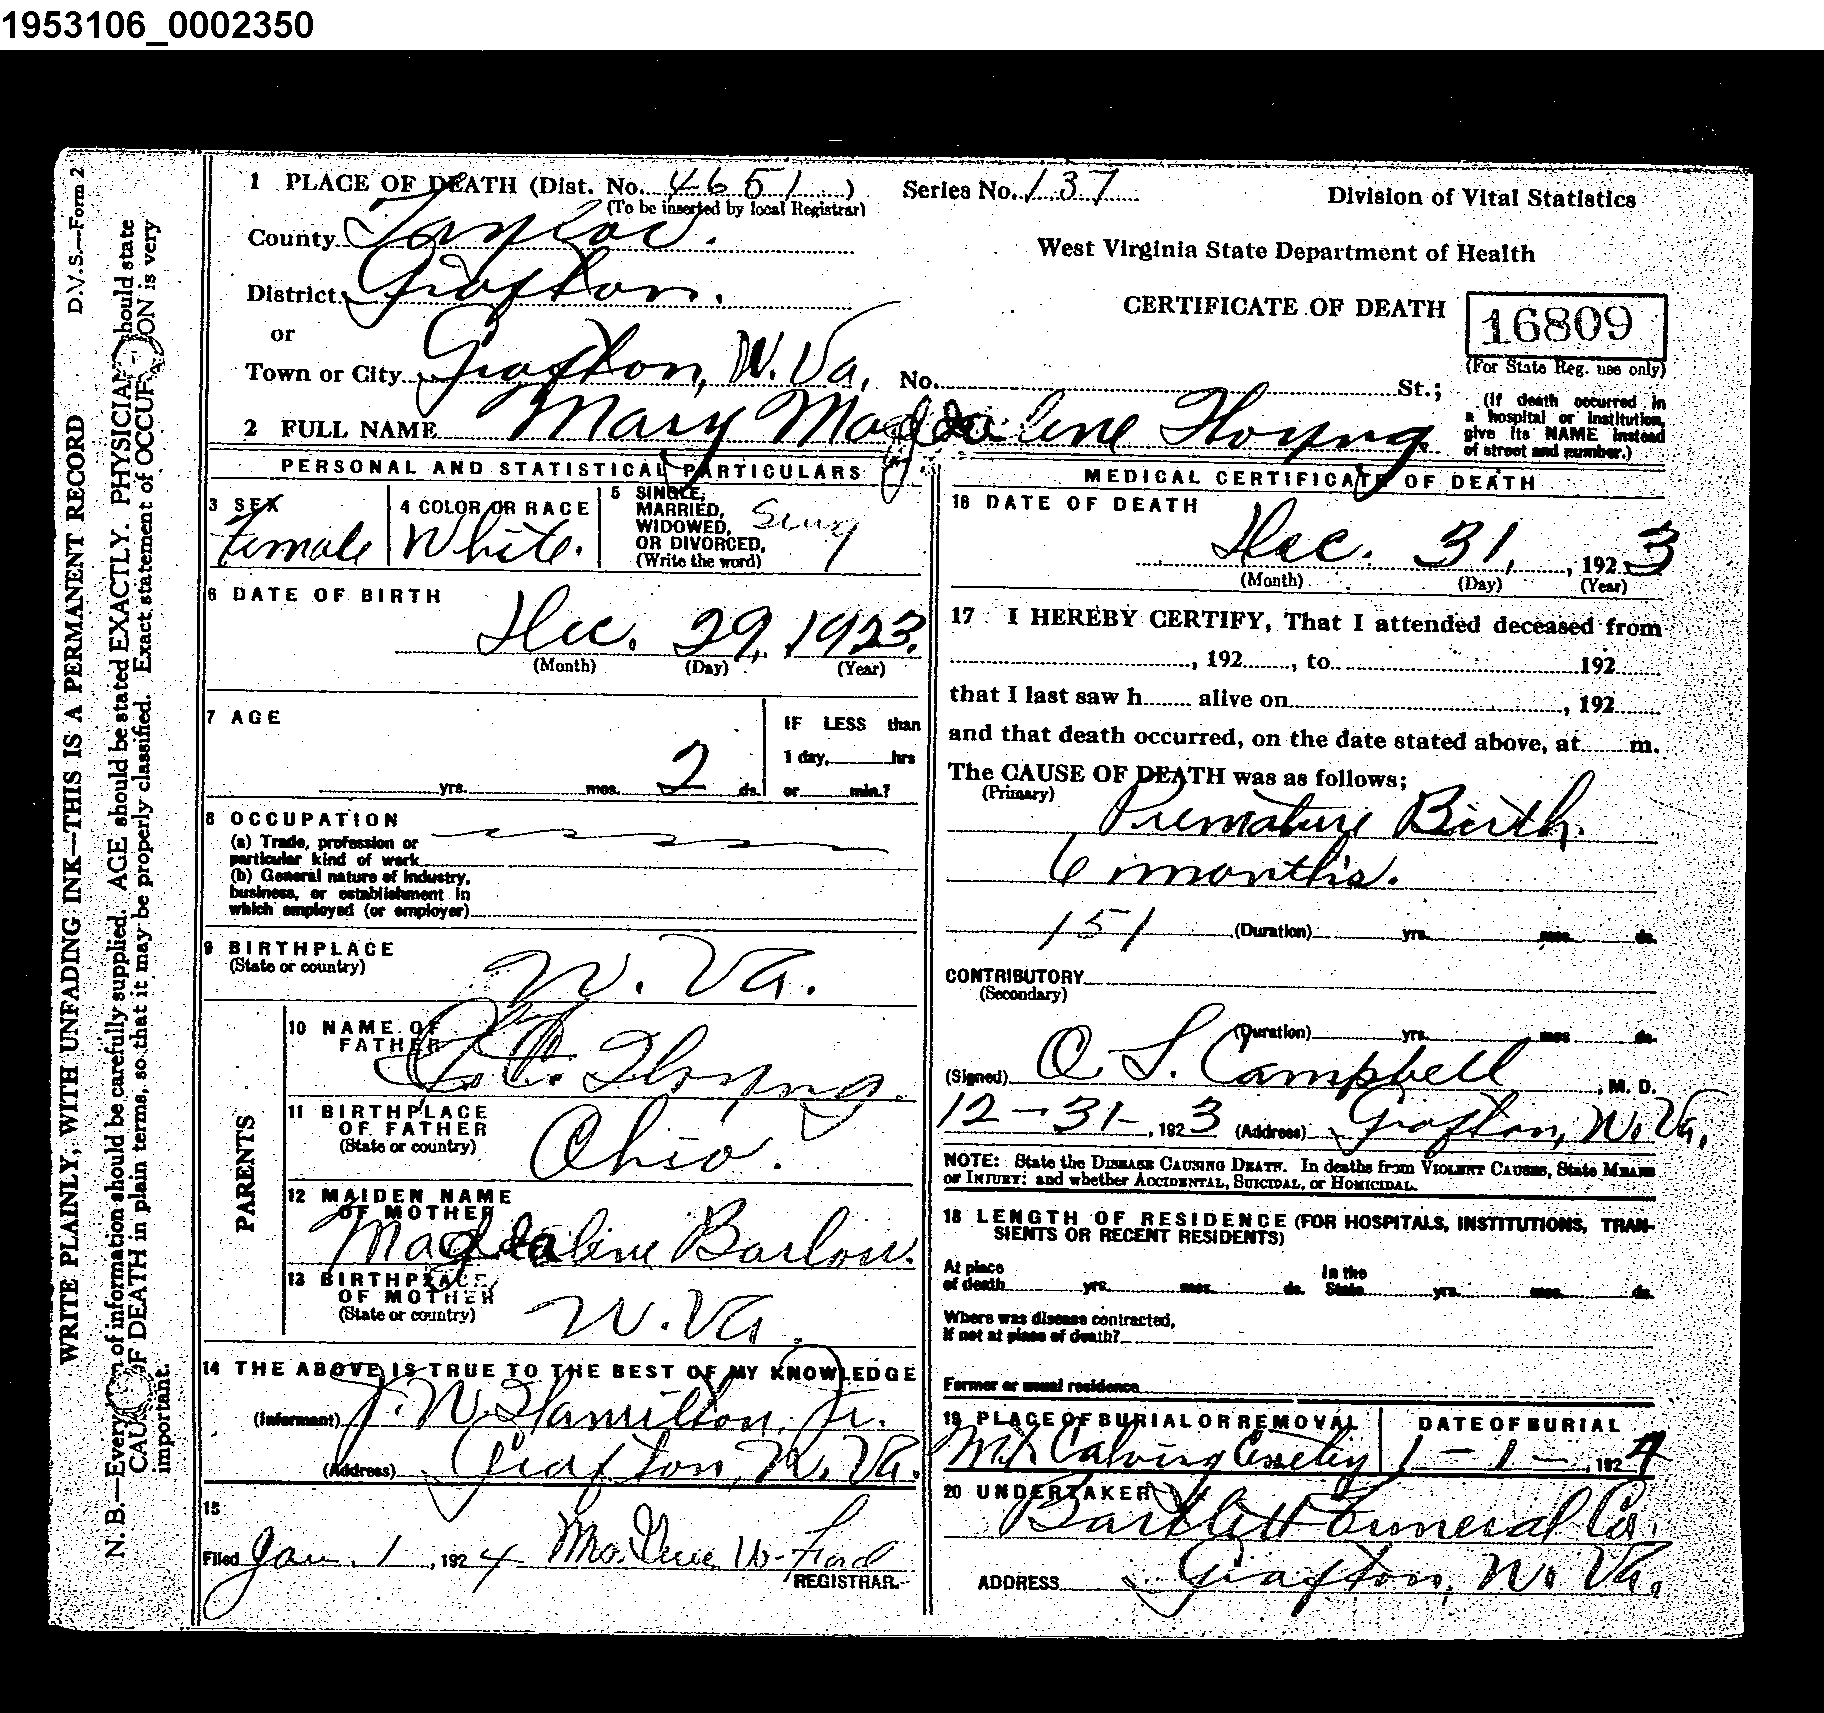 1953106_0002350
D.V.S.—Form 2
WRITE PLAINLY, WITH UNFADING INK—THIS IS A PERMANENT RECORD
N. B.—Every of information should be carefully supplied. AGE should be stated EXACTLY. PHYSICIAN should state
CAUSE OF DEATH in plain terms, so that it may be properly classified. Exact statement of OCCUPATION is very
important.
1 PLACE OF DEATH (Dist. No. 4651) Series No. 137 Division of Vital Statistics
(To be inserted by local Registrar)
County Taylor.
West Virginia State Department of Health
District Grafton.
CERTIFICATE OF DEATH 16809
(For State Reg. use only)
or
Town or City Grafton, W. Va, No. St.;
(If death occurred in
a hospital or institution,
give its NAME instead
of street and number.)
2 FULL NAME Mary Magdaline
PERSONAL AND STATISTICAL PARTICULARS
3 SEX Female
4 COLOR OR RACE White.
5 SINGLE,
MARRIED,
WIDOWED,
OR DIVORCED,
(Write the word)
6 DATE OF BIRTH
Dec. 29, 1923.
(Month) (Day) (Year)
7 AGE
yrs. mos. 2 ds.
IF LESS than
1 day, hrs
or min.?
8 OCCUPATION
(a) Trade, profession or
particular kind of work
(b) General nature of industry,
business, or establishment in
which employed (or employer)
9 BIRTHPLACE
(State or country) W. Va.
PARENTS
10 NAME OF
FATHER
11 BIRTHPLACE
OF FATHER
(State or country) Ohio.
12 MAIDEN NAME
OF MOTHER
Magdaline Barlow.
13 BIRTHPLACE
OF MOTHER
(State or country) W. Va.
14 THE ABOVE IS TRUE TO THE BEST OF MY KNOWLEDGE
(Informant) J. W. Hamilton, Jr.
(Address) Grafton, W. Va.
15
Filed Jan. 1, 1924 Ford
REGISTRAR
MEDICAL CERTIFICATE OF DEATH
16 DATE OF DEATH
Dec. 31, 1923
(Month) (Day) (Year)
17 I HEREBY CERTIFY, That I attended deceased from
, 192 , to 192
that I last saw h alive on , 192
and that death occurred, on the date stated above, at m.
The CAUSE OF DEATH was as follows;
(Primary)
Premature Birth.
6 months.
151 (Duration) yrs. mos. ds.
CONTRIBUTORY
(Secondary)
(Duration) yrs. mos ds.
(Signed) O. L. Campbell, M. D.
12-31-, 1923 (Address) Grafton, W. Va.
NOTE: State the DISEASE CAUSING DEATH. In deaths from VIOLENT CAUSES, State MEANS
OF INJURY; and whether ACCIDENTAL, SUICIDAL, or HOMICIDAL.
18 LENGTH OF RESIDENCE (FOR HOSPITALS, INSTITUTIONS, TRAN-
SIENTS OR RECENT RESIDENTS)
At place
of death yrs. mos. ds. In the
State yrs. mos. ds.
Where was disease contracted,
if not at place of death?
Former or usual residence
19 PLACE OF BURIAL OR REMOVAL
Mt Calvary
DATE OF BURIAL
1-1-, 1924
20 UNDERTAKER
Bartlett Funeral Co.
ADDRESS Grafton, W. Va.